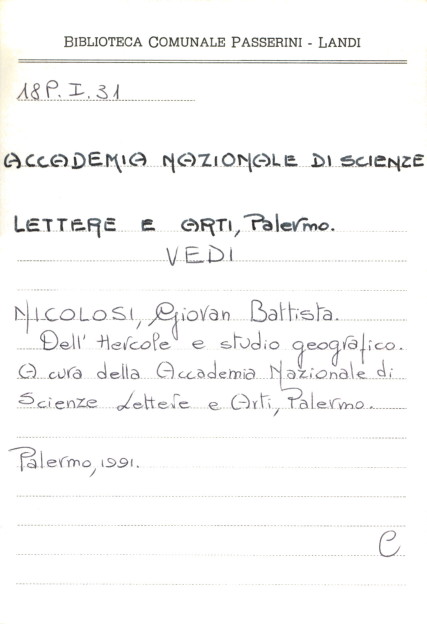 BIBLIOTECA COMUNALE PASSERINI - LANDI
18P.I.31
ACCADEMIA NAZIONALE DI SCIENZE
LETTERE E ARTI, Palermo.
VEDI
NICOLOSI, Giovan Battista.
Dell' Hercole e studio geografico.
A cura della Accademia Nazionale di
Scienze Lettere e Arti, Palermo.
Palermo, 1991.
C